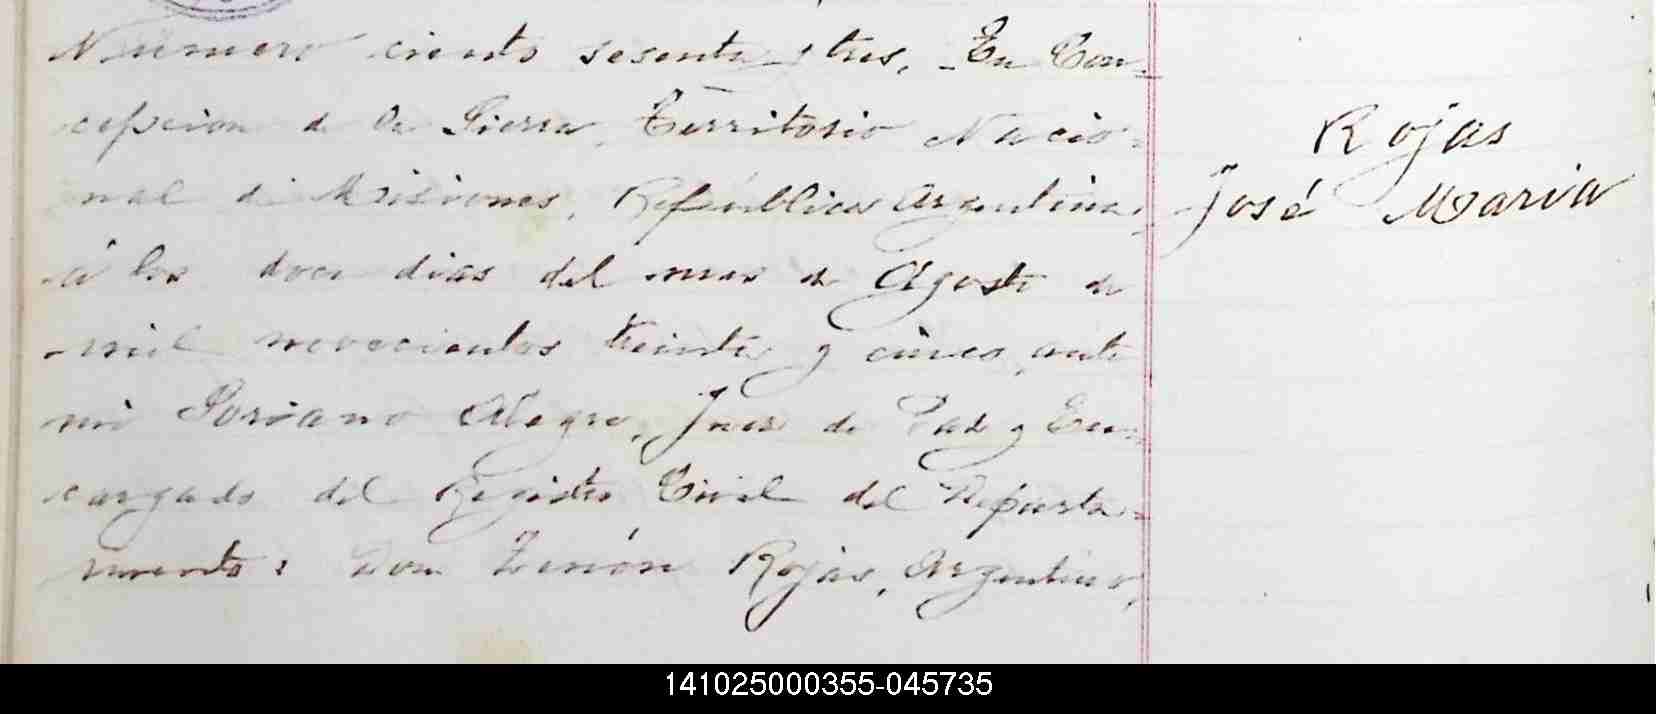 Numero ciento sesenta y tres. En Con-
cepcion de la Sierra, Territorio Nacio-
nal de Misiones, República Argentina,
á los doce dias del mes de Agosto de
mil novecientos treinta y cinco, ante
mi Soriano Alegre, Juez de Paz y En-
cargado del Registro Civil del Departa-
mento: Don Zenón Rojas, Argentino,
Rojas
José Maria
141025000355-045735